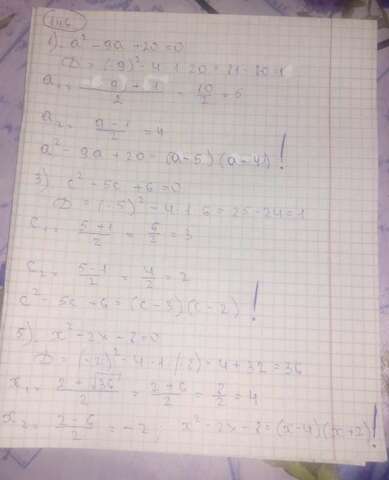 146
1). a² - 9a + 20 = 0
D = (-9)² - 4 · 1 · 20 = 81 - 80 = 1
a₁ = (9 + 1)/2 = 10/2 = 5
a₂ = (9 - 1)/2 = 4
a² - 9a + 20 = (a - 5)(a - 4)!
3). c² - 5c + 6 = 0
D = (-5)² - 4 · 1 · 6 = 25 - 24 = 1
c₁ = (5 + 1)/2 = 6/2 = 3
c₂ = (5 - 1)/2 = 4/2 = 2
c² - 5c + 6 = (c - 3)(c - 2)!
5). x² - 2x - 8 = 0
D = (-2)² - 4 · 1 · (-8) = 4 + 32 = 36
x₁ = (2 + √36)/2 = (2 + 6)/2 = 8/2 = 4
x₂ = (2 - 6)/2 = -2; x² - 2x - 8 = (x - 4)(x + 2)!